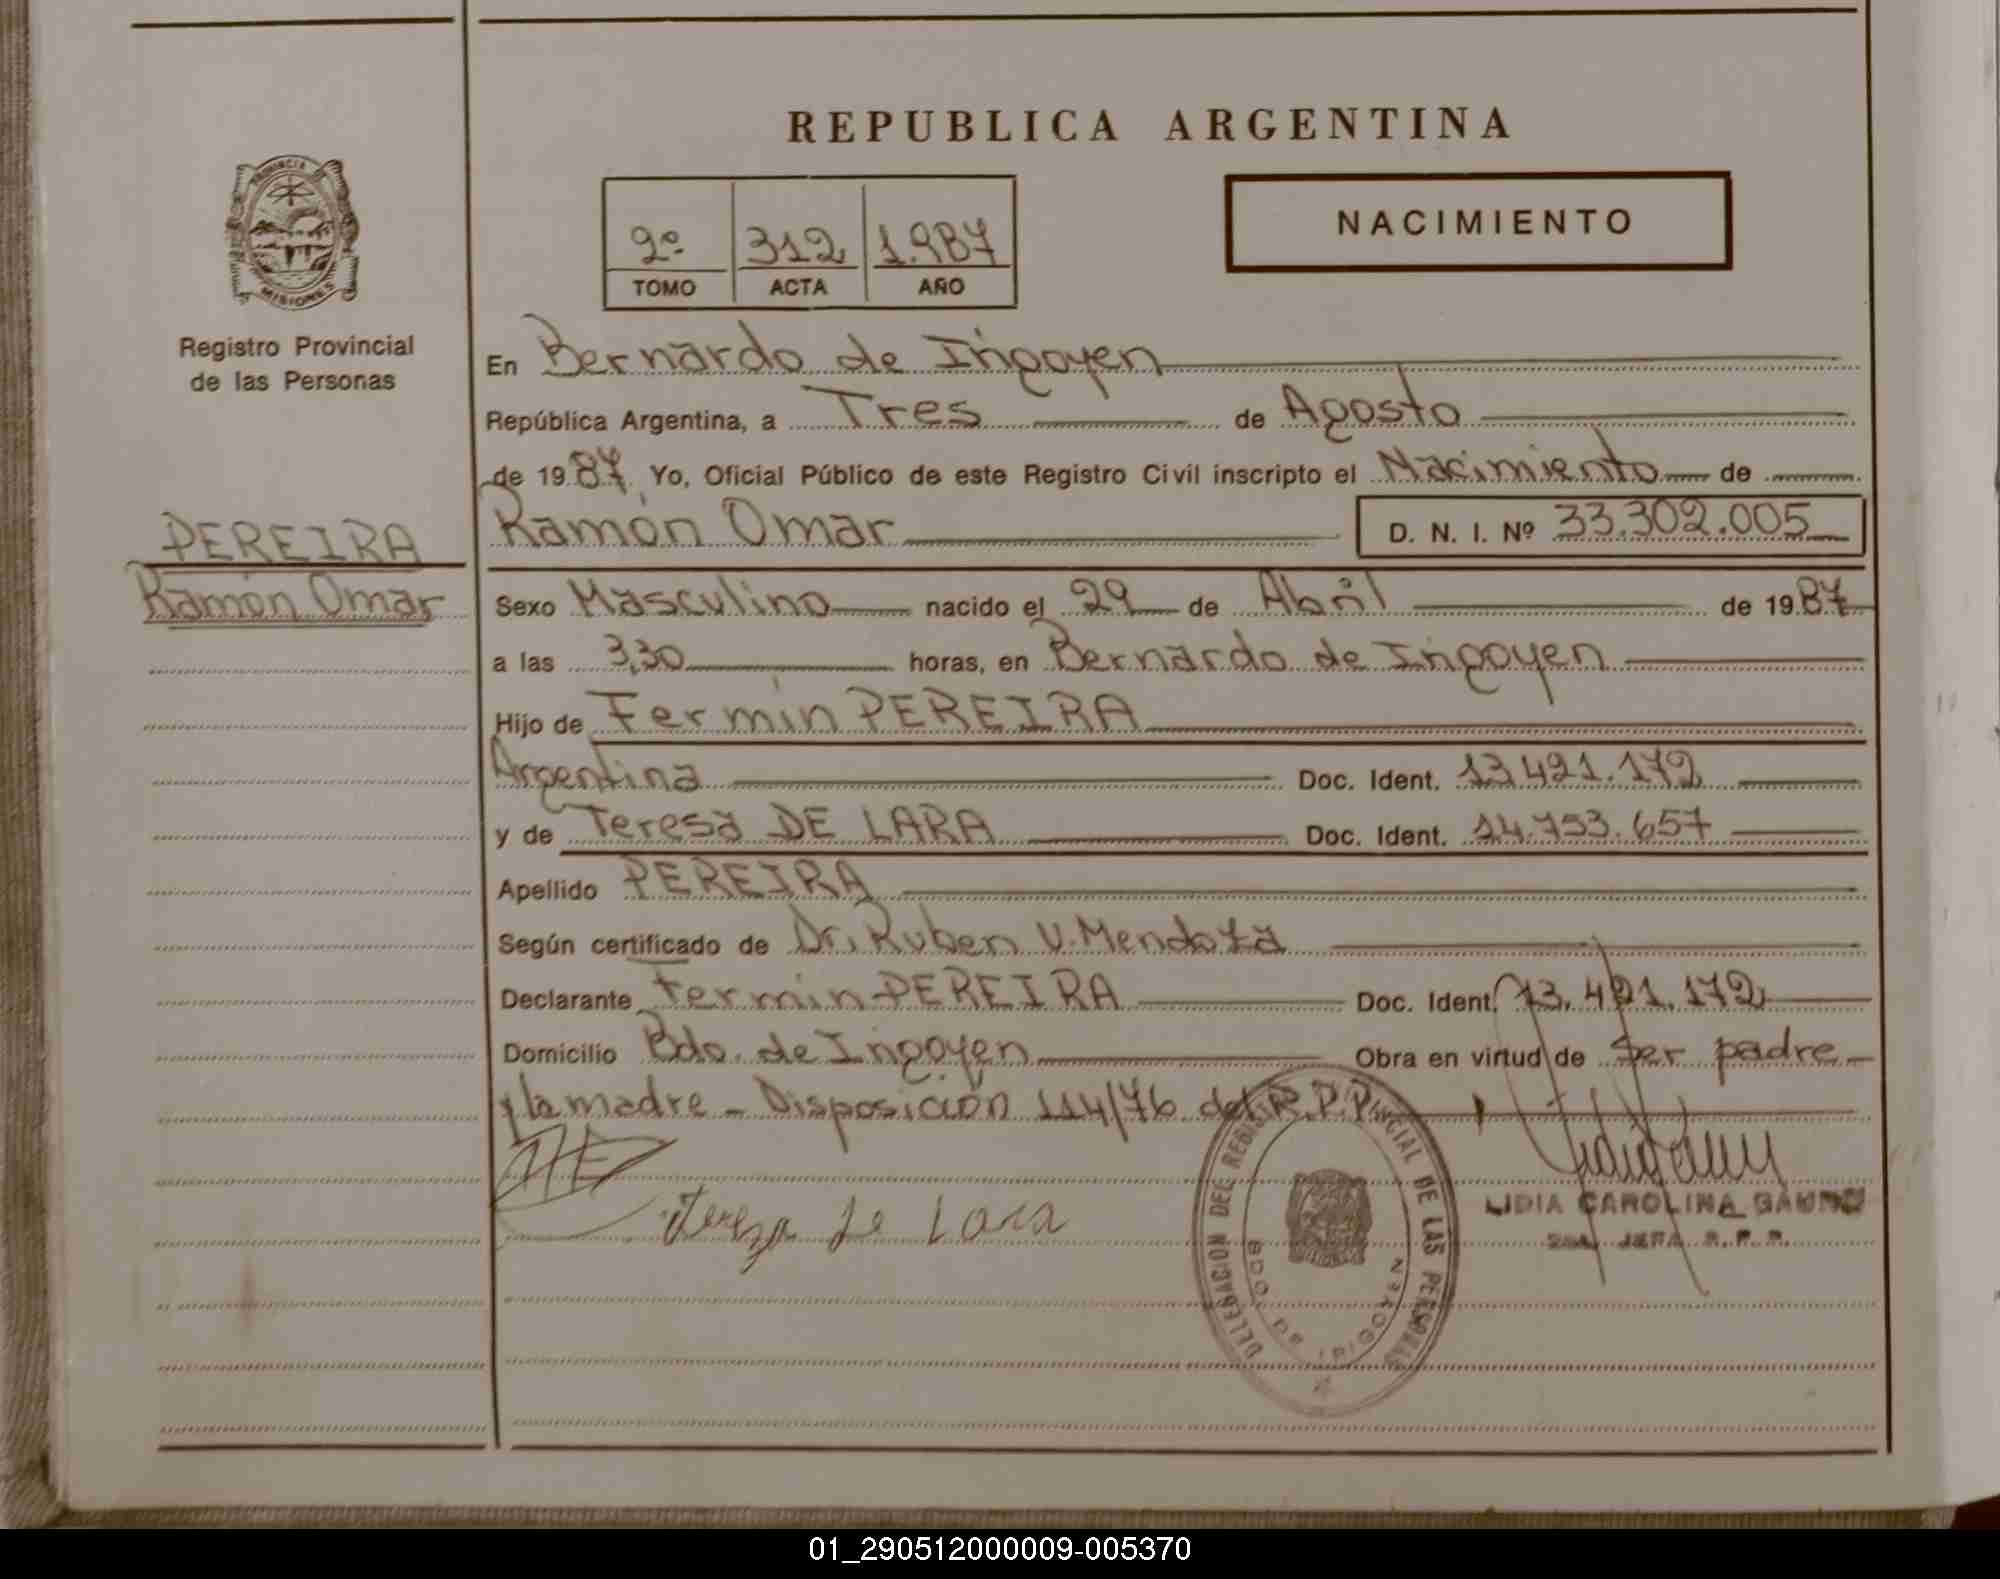 REPUBLICA ARGENTINA
PROVINCIA
MISIONES
Registro Provincial
de las Personas
2º 312 1.987
TOMO ACTA AÑO
NACIMIENTO
En Bernardo de Irigoyen
República Argentina, a Tres de Agosto
de 1987. Yo, Oficial Público de este Registro Civil inscripto el Nacimiento de
PEREIRA
Ramón Omar
Ramón Omar D. N. I. Nº 33.302.005
Sexo Masculino nacido el 29 de Abril de 1987
a las 3,30 horas, en Bernardo de Irigoyen
Hijo de Fermin PEREIRA
Argentina Doc. Ident. 13.421.172
y de Teresa DE LARA Doc. Ident. 14.733.657
Apellido PEREIRA
Según certificado de Dr. Ruben V. Mendoza
Declarante Fermin PEREIRA Doc. Ident. 13.421.172
Domicilio Bdo. de Irigoyen Obra en virtud de ser padre
y la madre - Disposición 114/76 del R.P.P.
Teresa de Lara
DELEGACION DEL REGISTRO PROVINCIAL DE LAS PERSONAS
BDO. DE IRIGOYEN
LIDIA CAROLINA
JEFA R. P. P.
01_290512000009-005370